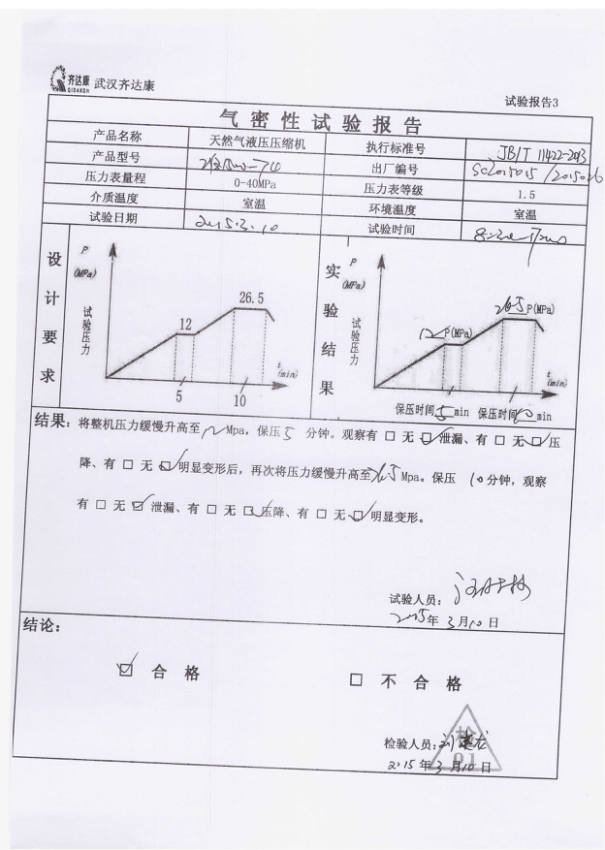 齐达康
QIDAKON
武汉齐达康
试验报告3
气密性试验报告
产品名称 天然气液压压缩机 执行标准号 JB/T 11422-2013
产品型号 出厂编号
压力表量程 0-40MPa 压力表等级 1.5
介质温度 室温 环境温度 室温
试验日期 2015.3.10 试验时间
设计要求
P
(MPa)
试验压力
12
26.5
t
(min)
5
10
实验结果
P
(MPa)
试验压力
12 P(MPa)
26.5 P(MPa)
t
(min)
保压时间 5 min 保压时间 10 min
结果：将整机压力缓慢升高至 12 Mpa，保压 5 分钟。观察有 □ 无 ☑ 泄漏、有 □ 无 ☑ 压
降、有 □ 无 ☑ 明显变形后，再次将压力缓慢升高至 26.5 Mpa。保压 10 分钟，观察
有 □ 无 ☑ 泄漏、有 □ 无 ☑ 压降、有 □ 无 ☑ 明显变形。
试验人员：
2015年 3月10日
结论：
☑ 合格 □ 不合格
检
01
检验人员：
2015年3月10日